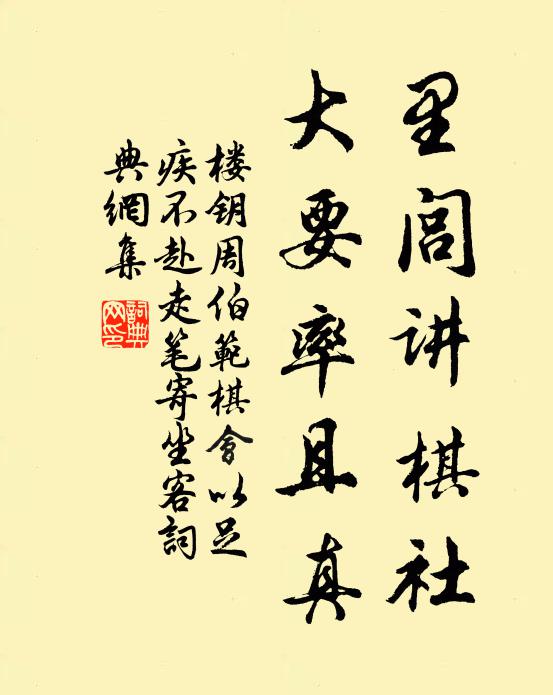 里闾讲棋社
大要率且真
楼钥周伯範棋會以足
疾不赴走笔寄坐客詞
典網集
詞典
网印